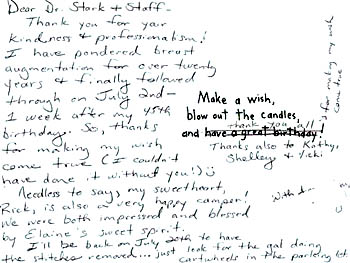 Dear Dr. Stark & Staff-
Thank you for your
kindness & professionalism!
I have pondered breast
augmentation for over twenty
years & finally followed
through on July 2nd-
1 week after my 45th
birthday. So, thanks
for making my wish
come true (I couldn't
have done it without you!)
Needless to say, my sweetheart,
Rick, is also a very happy camper!
We were both impressed and blessed
by Elaine's sweet spirit.
I'll be back on July 20th to have
the stitches removed... just look for the gal doing
cartwheels in the parking lot
Make a wish,
blow out the candles,
and have a great birthday!
thank you all
Thanks also to Kathy,
Shelley & Vicki
for making my wish
come true